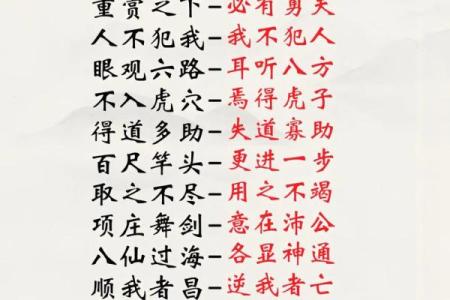 重赏之下–必有勇夫
人不犯我–我不犯人
眼观六路–耳听八方
不入虎穴–焉得虎子
得道多助–失道寡助
百尺竿头–更进一步
取之不尽–用之不竭
项庄舞剑–意在沛公
八仙过海–各显神通
顺我者昌–逆我者亡